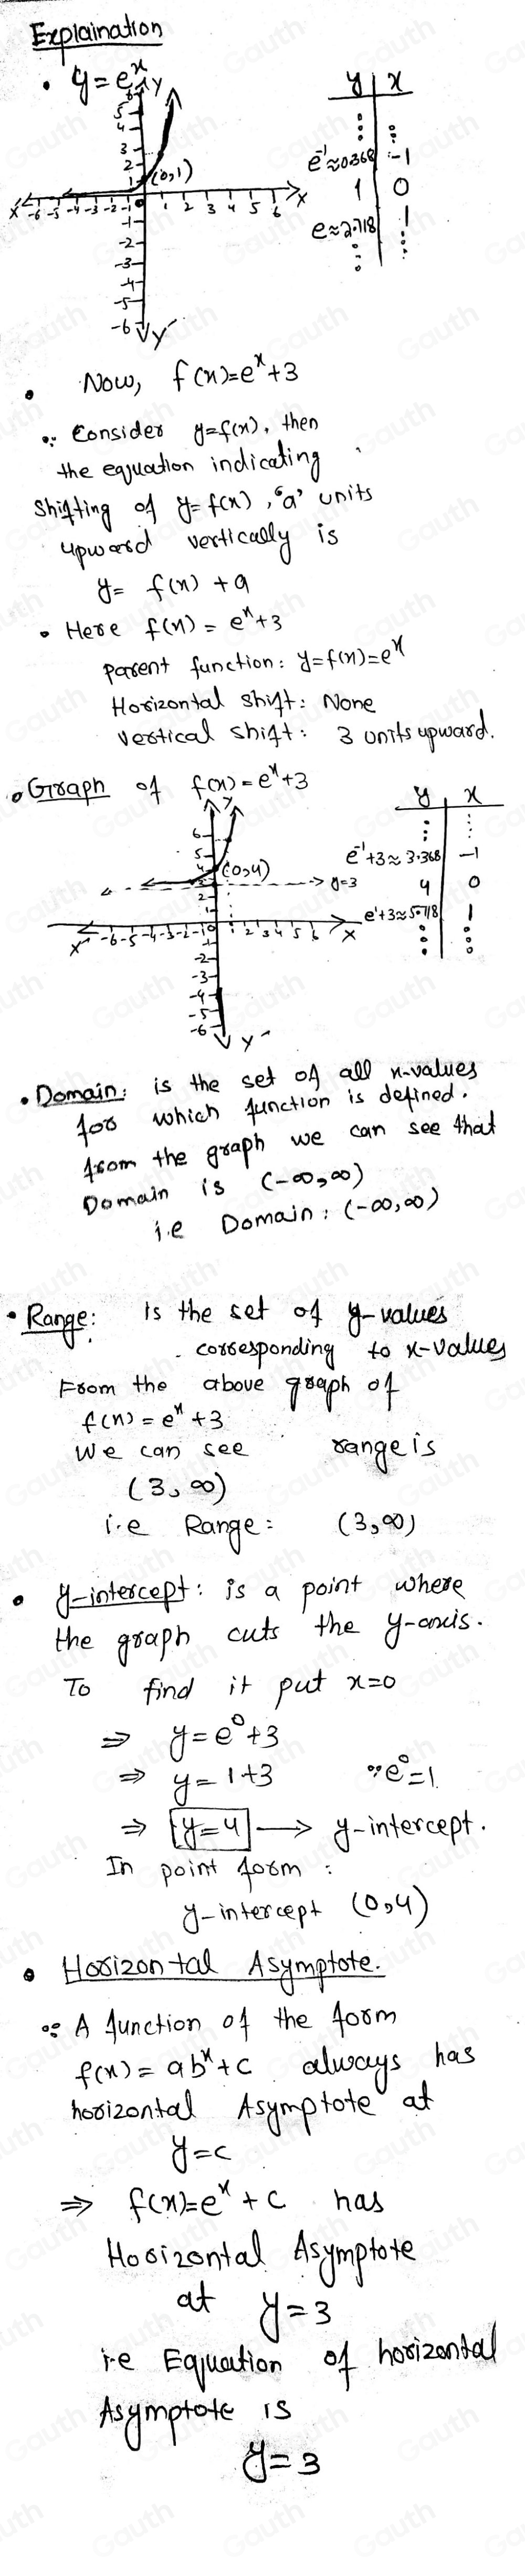 Explaination
• y=eˣ
y | x
⋮ | ⋮
e⁻¹≈0.368 | -1
1 | 0
e≈2.718 | 1
⋮ | ⋮
Y
5
4
3
2
1
(0,1)
X' -6 -5 -4 -3 -2 -1 0 1 2 3 4 5 6 X
-1
-2
-3
-4
-5
-6
Y'
• Now, f(x)=eˣ+3
∵ Consider y=f(x), then
the equation indicating
shifting of y=f(x), 'a' units
upward vertically is
y= f(x) +a
• Here f(x) = eˣ+3
Parent function: y=f(x)=eˣ
Horizontal shift: None
Vertical shift: 3 units upward.
• Graph of f(x)=eˣ+3
y | x
⋮ | ⋮
e⁻¹+3≈3.368 | -1
4 | 0
e¹+3≈5.718 | 1
⋮ | ⋮
Y
6
5
4
(0,4)
y=3
2
1
X' -6 -5 -4 -3 -2 -1 0 1 2 3 4 5 6 X
-1
-2
-3
-4
-5
-6
Y'
• Domain: is the set of all x-values
for which function is defined.
from the graph we can see that
Domain is (-∞,∞)
i.e Domain: (-∞,∞)
• Range: Is the set of y-values
corresponding to x-values
From the above graph of
f(x) = eˣ+3
We can see range is
(3,∞)
i.e Range: (3,∞)
• y-intercept: is a point where
the graph cuts the y-axis.
To find it put x=0
⇒ y=e⁰+3
⇒ y=1+3 ∵e⁰=1
⇒ y=4 → y-intercept.
In point form :
y-intercept (0,4)
• Horizontal Asymptote.
∵ A function of the form
f(x)= abˣ+c always has
horizontal Asymptote at
y=c
⇒ f(x)=eˣ+c has
Horizontal Asymptote
at y=3
i.e Equation of horizontal
Asymptote is
y=3